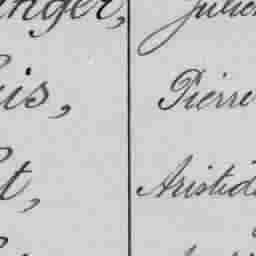 anger, Julien
is, Pierre
t, Aristid